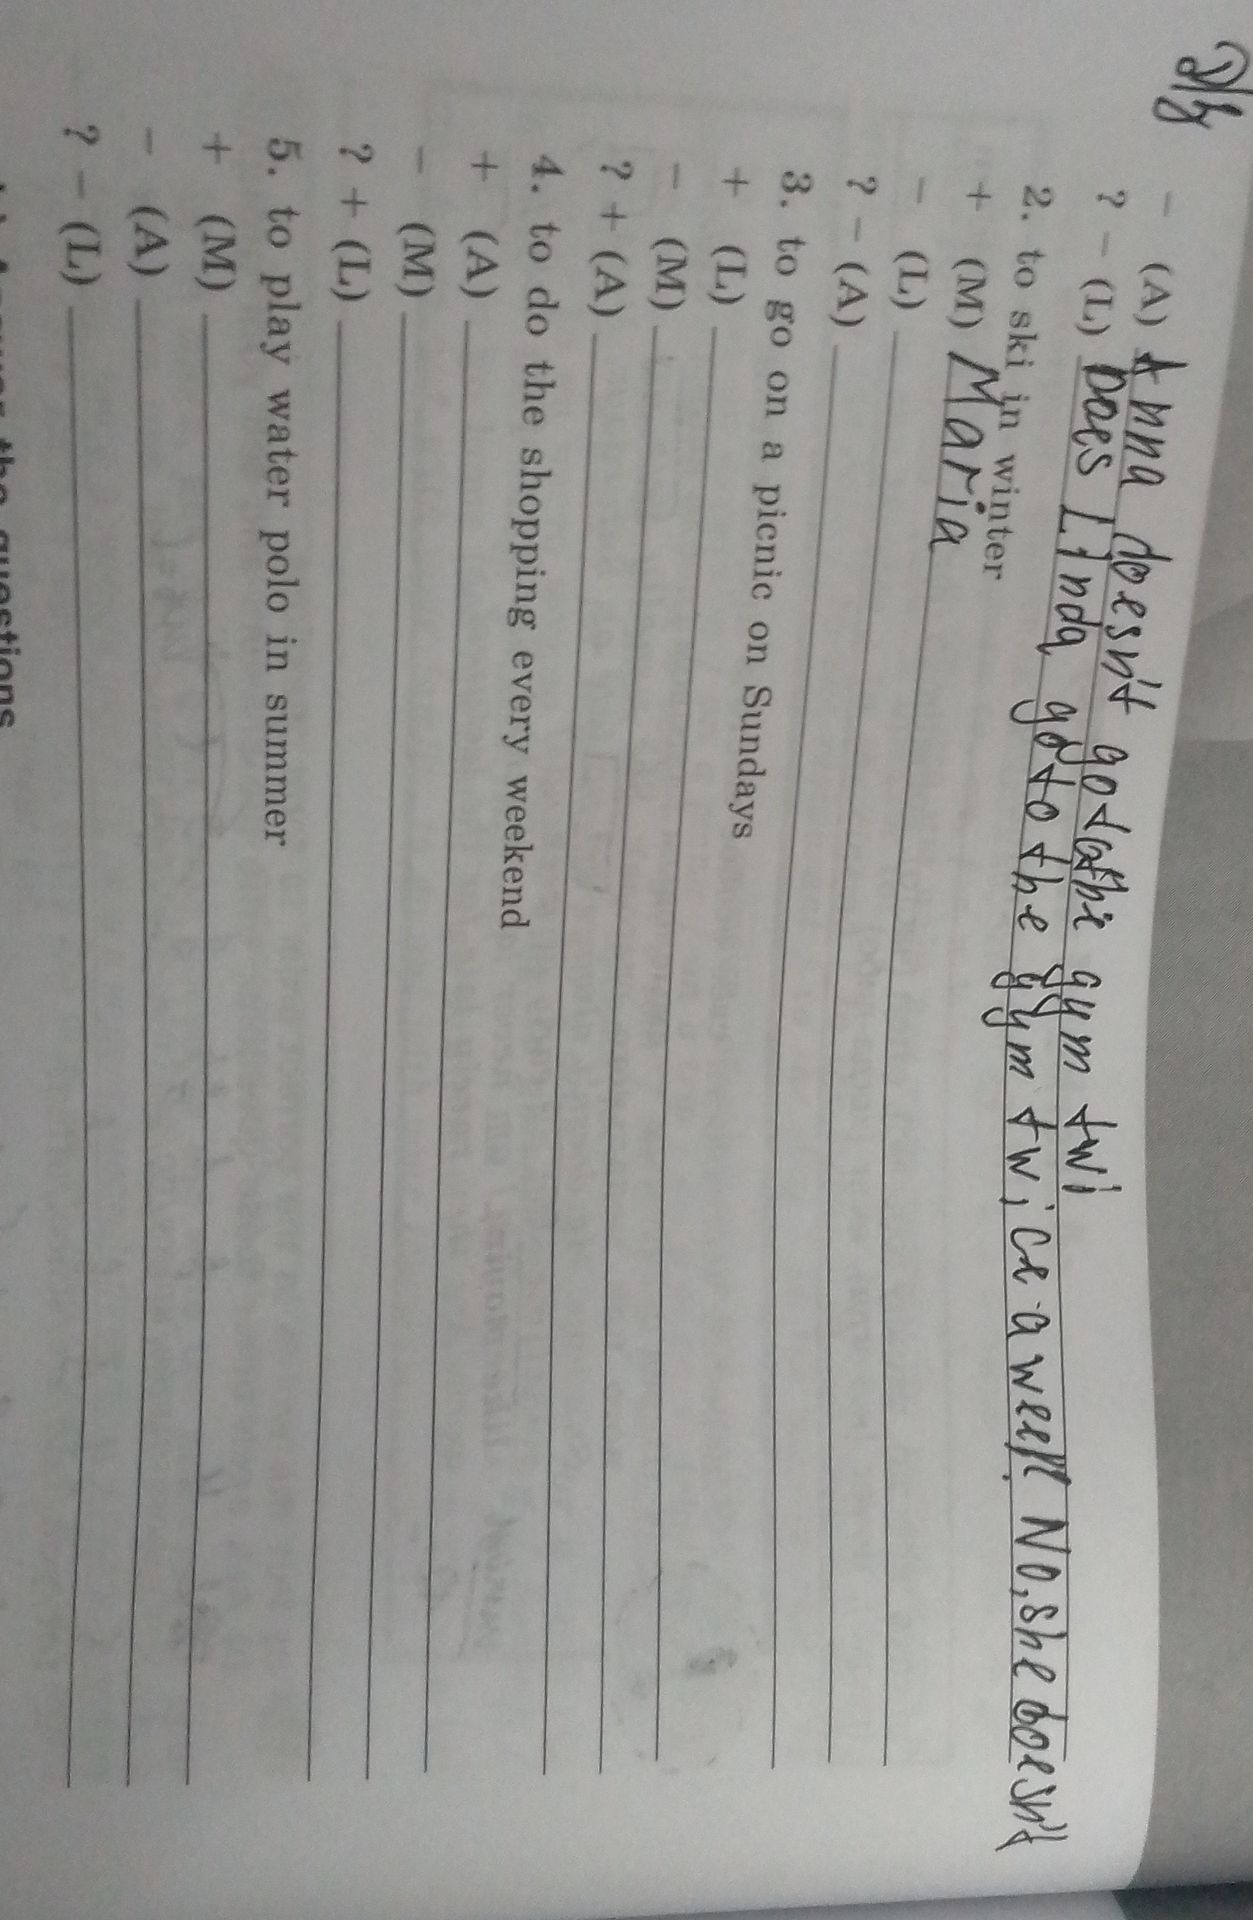 D/z
- (A) Anna doesn't go to the gym twi
? - (L) Does Linda go to the gym twice a week No, she doesn't
2. to ski in winter
+ (M) Maria
- (L)
? - (A)
3. to go on a picnic on Sundays
+ (L)
- (M)
? + (A)
4. to do the shopping every weekend
+ (A)
- (M)
? + (L)
5. to play water polo in summer
+ (M)
- (A)
? - (L)
the questions